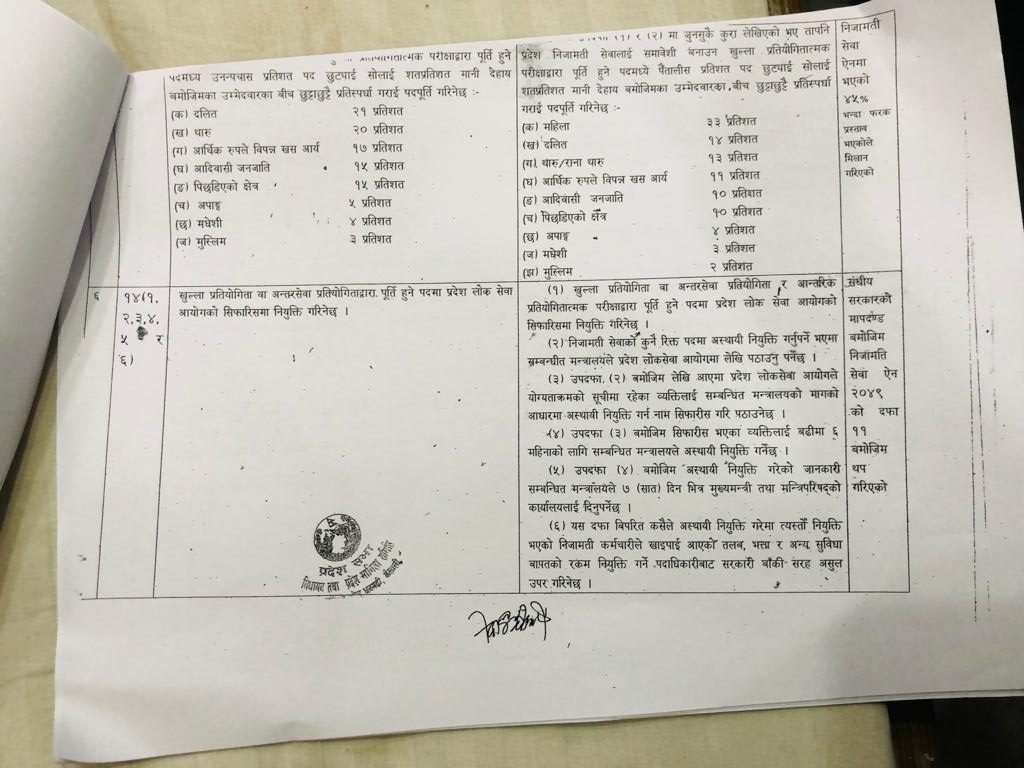 प्रतियोगितात्मक परीक्षाद्वारा पूर्ति हुने
पदमध्ये उनन्पचास प्रतिशत पद छुट्याई सोलाई शतप्रतिशत मानी देहाय
बमोजिमका उम्मेदवारका बीच छुट्टाछुट्टै प्रतिस्पर्धा गराई पदपूर्ति गरिनेछ :-
(क) दलित २१ प्रतिशत
(ख) थारु २० प्रतिशत
(ग) आर्थिक रुपले विपन्न खस आर्य १७ प्रतिशत
(घ) आदिवासी जनजाति १५ प्रतिशत
(ङ) पिछडिएको क्षेत्र १५ प्रतिशत
(च) अपाङ्ग ५ प्रतिशत
(छ) मधेशी ४ प्रतिशत
(ज) मुस्लिम ३ प्रतिशत
(१) र (२) मा जुनसुकै कुरा लेखिएको भए तापनि
प्रदेश निजामती सेवालाई समावेशी बनाउन खुल्ला प्रतियोगितात्मक
परीक्षाद्वारा पूर्ति हुने पदमध्ये पैंतालीस प्रतिशत पद छुट्याई सोलाई
शतप्रतिशत मानी देहाय बमोजिमका उम्मेदवारका बीच छुट्टाछुट्टै प्रतिस्पर्धा
गराई पदपूर्ति गरिनेछ :-
(क) महिला ३३ प्रतिशत
(ख) दलित १४ प्रतिशत
(ग) थारु/राना थारु १३ प्रतिशत
(घ) आर्थिक रुपले विपन्न खस आर्य ११ प्रतिशत
(ङ) आदिवासी जनजाति १० प्रतिशत
(च) पिछडिएको क्षेत्र १० प्रतिशत
(छ) अपाङ्ग ४ प्रतिशत
(ज) मधेशी ३ प्रतिशत
(झ) मुस्लिम २ प्रतिशत
निजामती
सेवा
ऐनमा
भएको
४५%
भन्दा फरक
प्रस्ताव
भएकोले
मिलान
गरिएको
६
१४(१,
२,३,४,
५ र
६)
खुल्ला प्रतियोगिता वा अन्तरसेवा प्रतियोगिताद्वारा पूर्ति हुने पदमा प्रदेश लोक सेवा
आयोगको सिफारिसमा नियुक्ति गरिनेछ ।
(१) खुल्ला प्रतियोगिता वा अन्तरसेवा प्रतियोगिता र आन्तरिक
प्रतियोगितात्मक परीक्षाद्वारा पूर्ति हुने पदमा प्रदेश लोक सेवा आयोगको
सिफारिसमा नियुक्ति गरिनेछ ।
(२) निजामती सेवाको कुनै रिक्त पदमा अस्थायी नियुक्ति गर्नुपर्ने भएमा
सम्बन्धीत मन्त्रालयले प्रदेश लोकसेवा आयोगमा लेखि पठाउनु पर्नेछ ।
(३) उपदफा (२) बमोजिम लेखि आएमा प्रदेश लोकसेवा आयोगले
योग्यताक्रमको सूचीमा रहेका व्यक्तिलाई सम्बन्धित मन्त्रालयको मागको
आधारमा अस्थायी नियुक्ति गर्न नाम सिफारीस गरि पठाउनेछ ।
(४) उपदफा (३) बमोजिम सिफारीस भएका व्यक्तिलाई बढीमा ६
महिनाको लागि सम्बन्धित मन्त्रालयले अस्थायी नियुक्ति गर्नेछ ।
(५) उपदफा (४) बमोजिम अस्थायी नियुक्ति गरेको जानकारी
सम्बन्धित मन्त्रालयले ७ (सात) दिन भित्र मुख्यमन्त्री तथा मन्त्रिपरिषद्को
कार्यालयलाई दिनुपर्नेछ ।
(६) यस दफा बिपरित कसैले अस्थायी नियुक्ति गरेमा त्यस्तो नियुक्ति
भएको निजामती कर्मचारीले खाइपाई आएको तलब, भत्ता र अन्य सुविधा
बापतको रकम नियुक्ति गर्ने पदाधिकारीबाट सरकारी बाँकी सरह असुल
उपर गरिनेछ ।
संघीय
सरकारको
मापदण्ड
बमोजिम
निजामति
सेवा ऐन
२०४९
को दफा
११
बमोजिम
थप
गरिएको
प्रदेश सभा